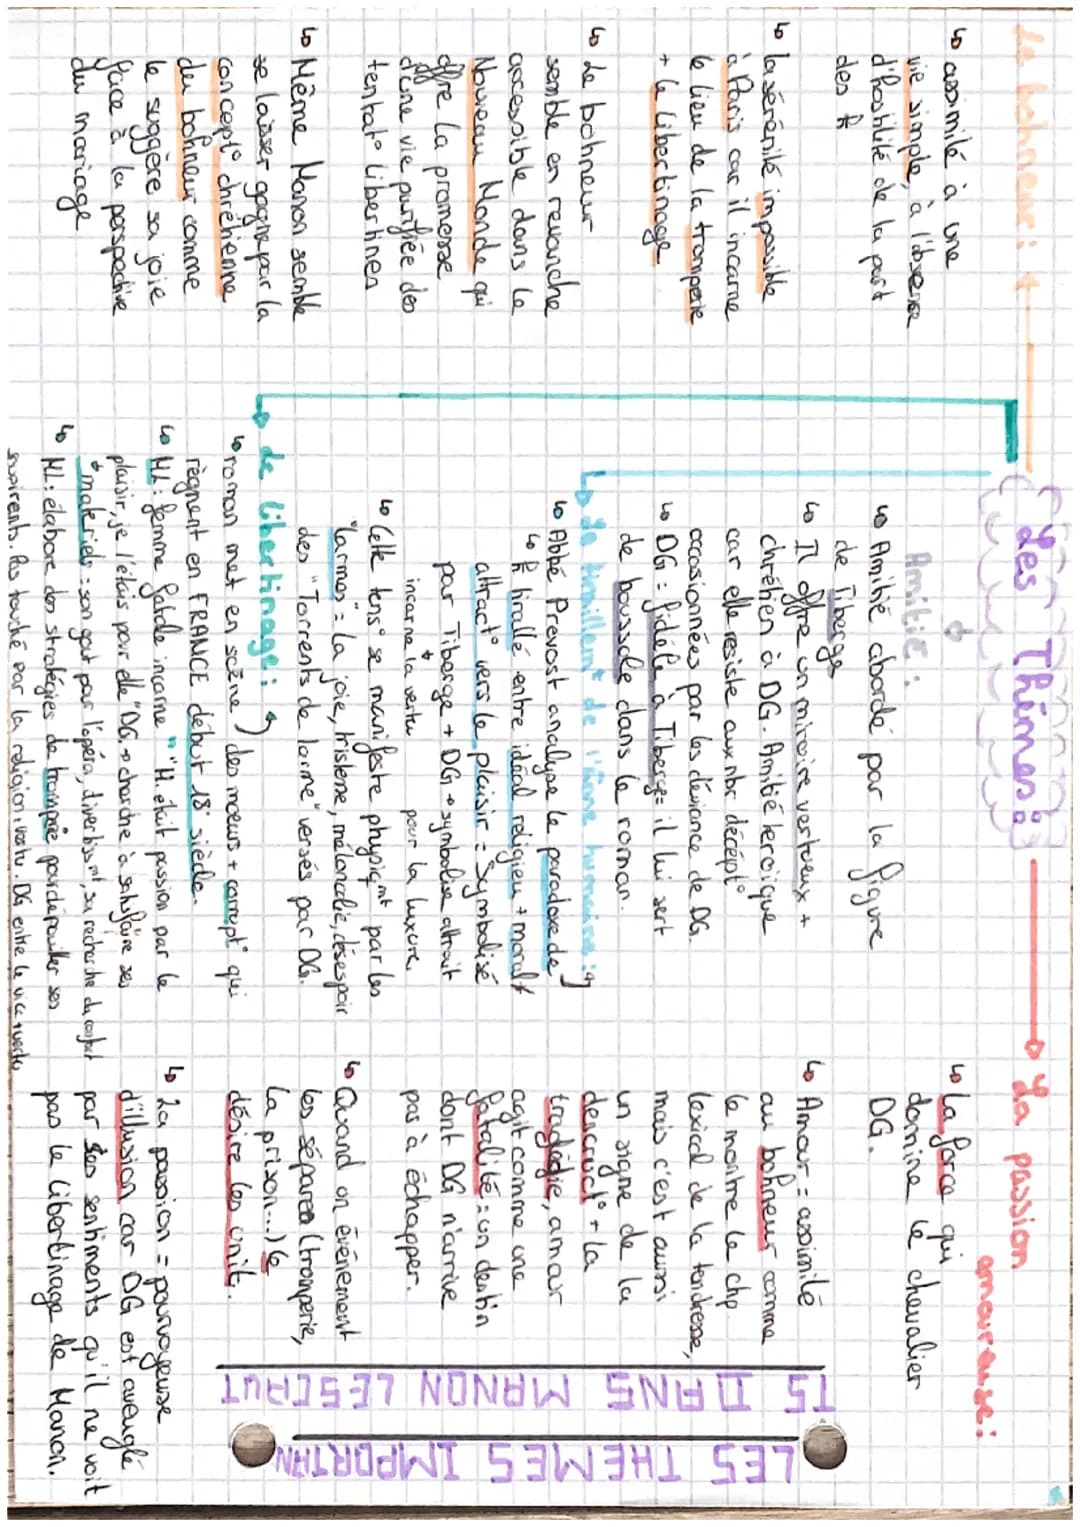 Les Thèmes:
Le bonheur:
↳ assimilé à une
vie simple, à l'absence
d'hostilité de la part
des
↳ la sérénité impossible
à Paris car il incarne
le lieu de la tromperie
+ le libertinage
↳ Le bonheur
semble en revanche
accessible dans le
Nouveau Monde qui
offre la promesse
d'une vie purifiée des
tentat° libertines
↳ Même Manon semble
se laisser gagner par la
concept° chrétienne
du bonheur comme
le suggère sa joie
face à la perspective
du mariage
Amitié:
↳ Amitié abordé par la figure
de Tiberge
↳ Il offre un miroire vertueux +
chrétien à DG. Amitié heroïque
car elle resiste aux nbr décépt°
occasionnées par les déviance de DG.
↳ DG = fidèle à Tiberge = il lui sert
de boussole dans le roman.
↳ Abbé Prevost analyse le paradoxe de
tiraillé entre idéal religieu + moral +
attract° vers le plaisir = Symbolisé
par Tiberge + DG → symbolise attrait
incarne la vertu pour la luxure.
↳ Cette tens° se manifeste physiqmt par les
"larmes" = la joie, tristesse, mélancolie, désespoir
des "Torrents de larme" versés par DG.
de libertinage:
↳ roman met en scène des mœurs + corrupt° qui
règnent en FRANCE début 18e siècle.
↳ ML: femme fatale incarne "M. était passion par le
plaisir, je l'étais pour elle" DG → cherche à satisfaire ses
materiels = son gout pour l'opéra, divertissmt, sa recherche du confort
↳ ML: élabore des stratégies de tromperie pour dépouiller ses
soupirants. Pas touché par la religion, vertu. DG entre le vice + vertu
La passion
amoureuse:
↳ La force qui
domine le chevalier
DG.
↳ Amour = assimilé
au bonheur comme
le montre le chp
lexical de la tendresse,
mais c'est aussi
un signe de la
destruct° + la
tragédie, amour
agit comme une
fatalité = un destin
dont DG n'arrive
pas à échapper.
↳ Quand on évènement
les sépares (tromperie,
la prison...) le
désire les unit.
↳ La passion = pourvoyeuse
d'illusion car DG est aveuglé
par ses sentiments qu'il ne voit
pas le libertinage de Manon.
LES THEMES IMPORTAN
TS DANS MANON LESCAUT